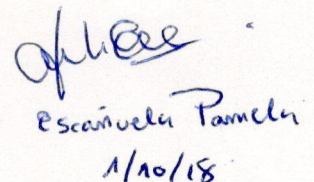 Escañuela Pamela
1/10/18